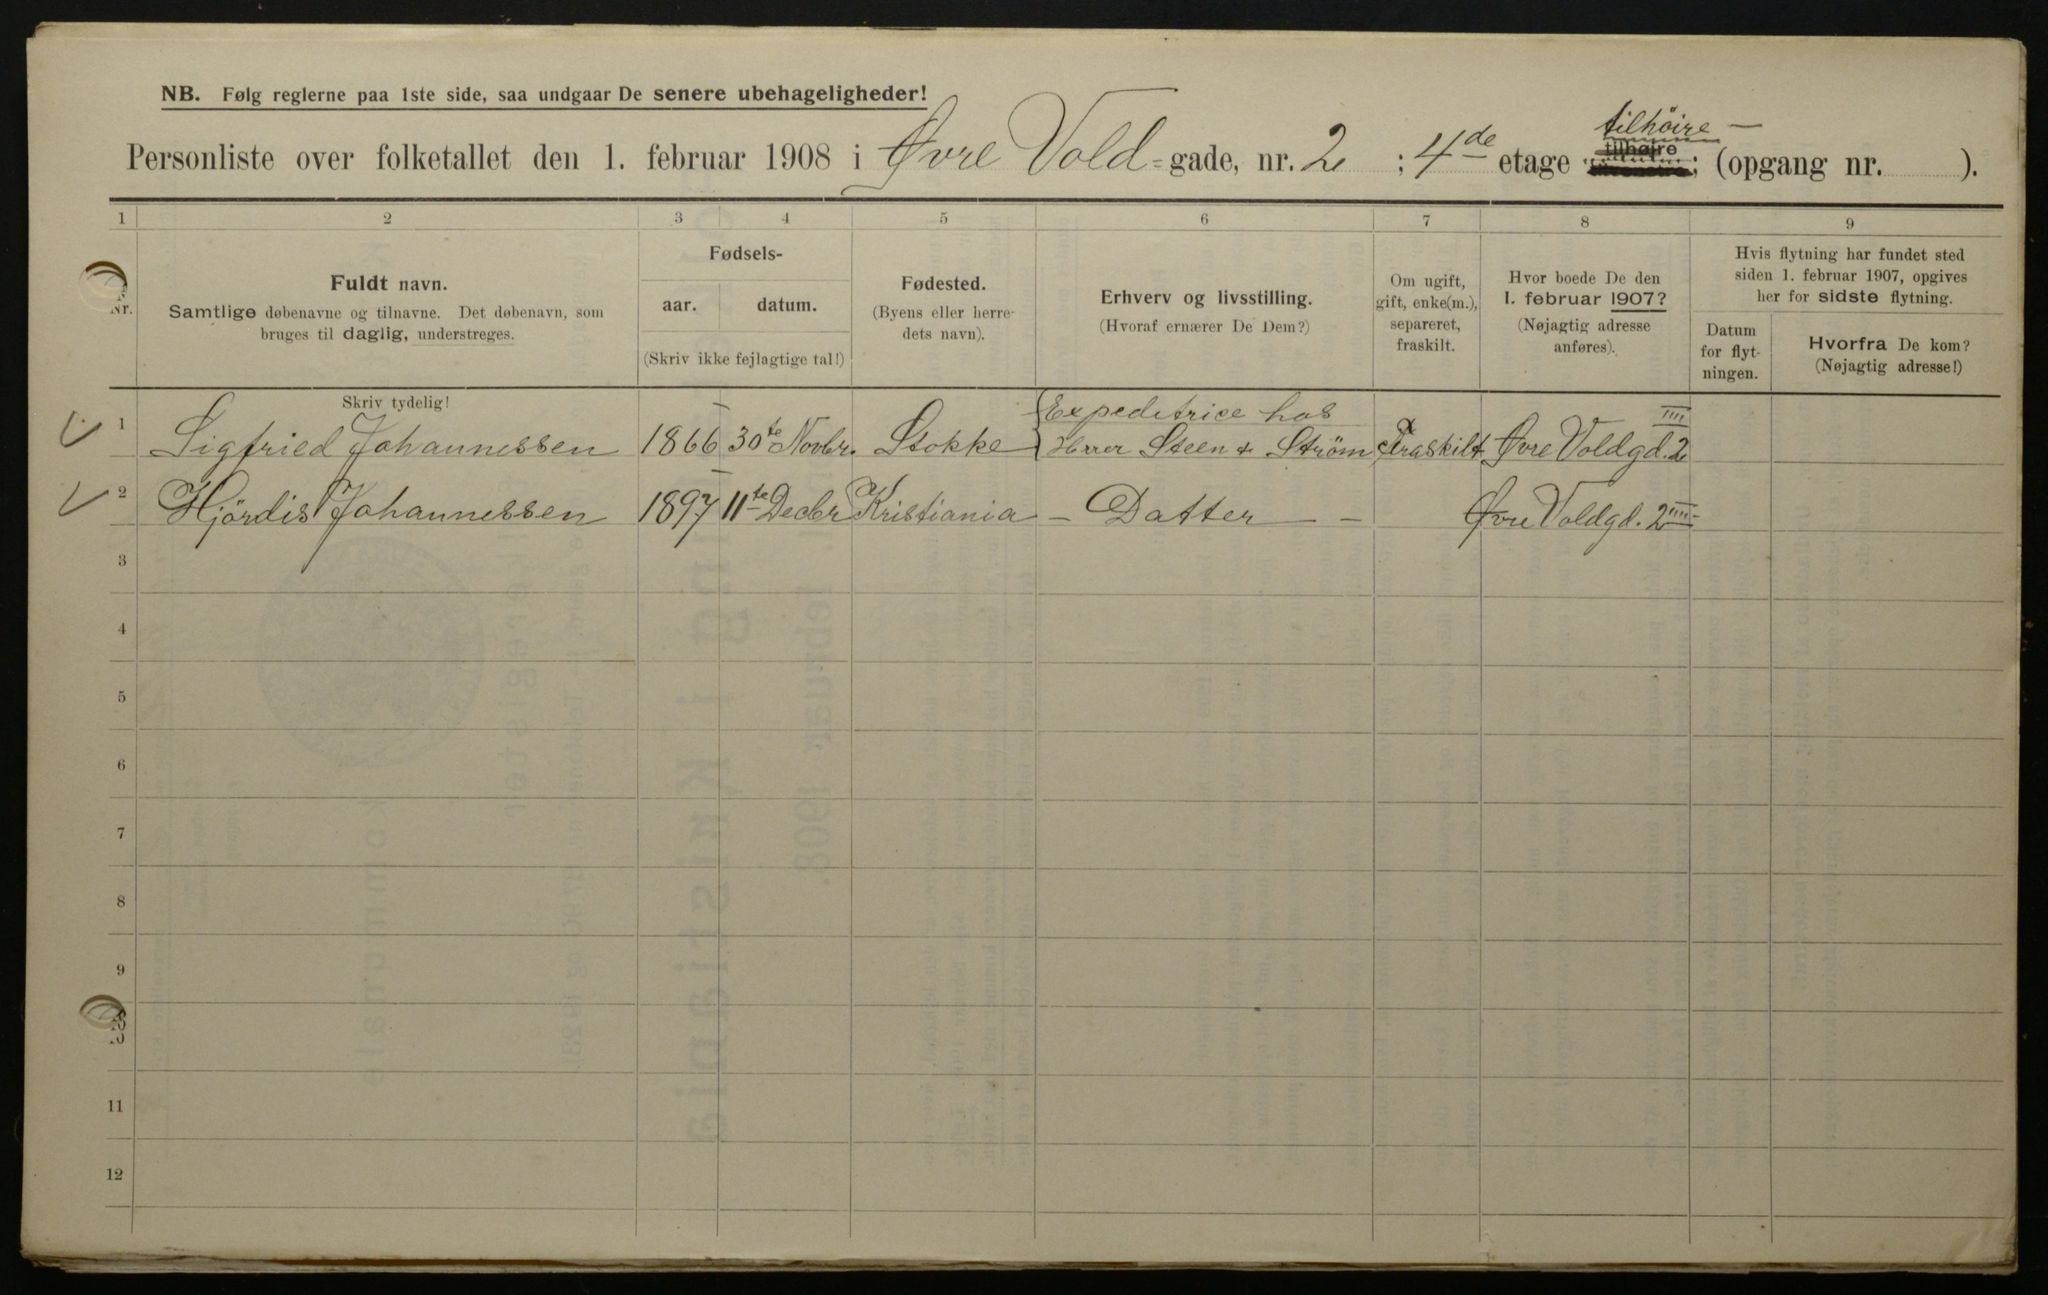 NB. Følg reglerne paa 1ste side, saa undgaar De senere ubehageligheder!
tilhöire –
Personliste over folketallet den 1. februar 1908 i Øvre Vold=gade, nr. 2 ; 4de etage tilhøire; (opgang nr. ).
1 2 3 4 5 6 7 8 9
Nr.
Fuldt navn.
Samtlige døbenavne og tilnavne. Det døbenavn, som
bruges til daglig, understreges.
Skriv tydelig!
Fødsels-
aar. datum.
(Skriv ikke fejlagtige tal!)
Fødested.
(Byens eller herre-
dets navn).
Erhverv og livsstilling.
(Hvoraf ernærer De Dem?)
Om ugift,
gift, enke(m.),
separeret,
fraskilt.
Hvor boede De den
1. februar 1907?
(Nøjagtig adresse
anføres).
Hvis flytning har fundet sted
siden 1. februar 1907, opgives
her for sidste flytning.
Datum
for flyt-
ningen.
Hvorfra De kom?
(Nøjagtig adresse!)
Expeditrice hos
1 Sigfried Johannessen 1866 30te Novbr. Stokke Herrer Steen & Strøm Fraskilt Øvre Voldgd. 2 IIII
2 Hjördis Johannessen 1897 11te Decbr Kristiania – Datter – – Øvre Voldgd. 2 IIII
3
4
5
6
7
8
9
10
11
12